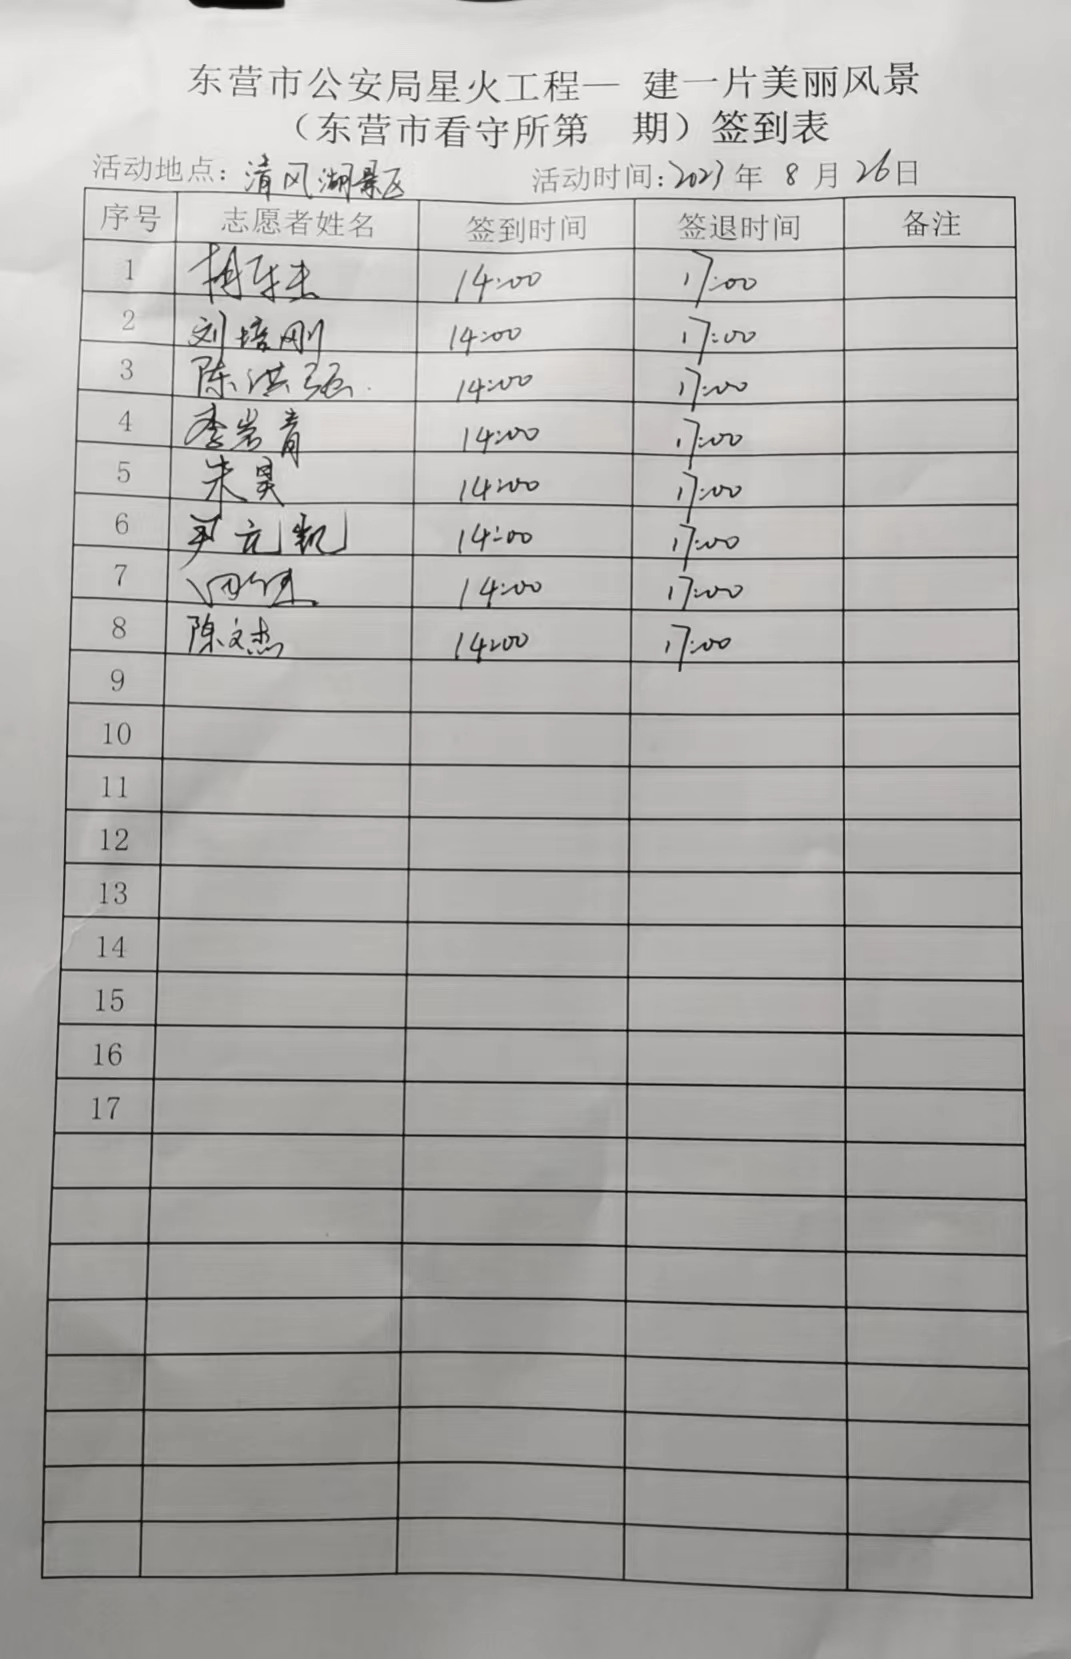 东营市公安局星火工程— 建一片美丽风景
（东营市看守所第　期）签到表
活动地点：清风湖景区 活动时间：2023年 8 月 26日
序号 志愿者姓名 签到时间 签退时间 备注
1 14:00 17:00
2 刘培刚 14:00 17:00
3 陈洪强 14:00 17:00
4 李岩青 14:00 17:00
5 朱昊 14:00 17:00
6 尹元凯 14:00 17:00
7 14:00 17:00
8 陈文杰 14:00 17:00
9
10
11
12
13
14
15
16
17